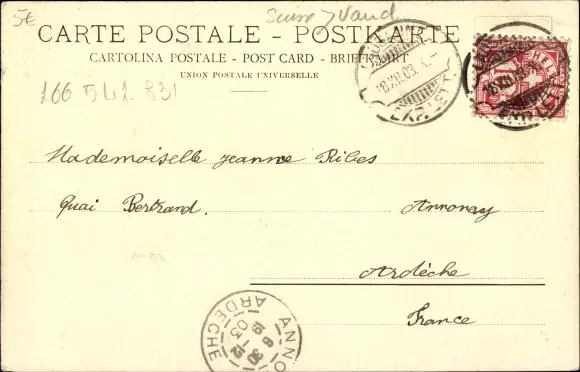 5€
Suisse > Vaud
CARTE POSTALE - POSTKARTE
CARTOLINA POSTALE - POST CARD - BRIEFKAART
UNION POSTALE UNIVERSELLE
166 541 831
18.XII.03
EXP. LET.
Mademoiselle Jeanne Ribes
Quai Bertrand.
Annonay
Ardèche
France
ANNO
ARDECHE
03